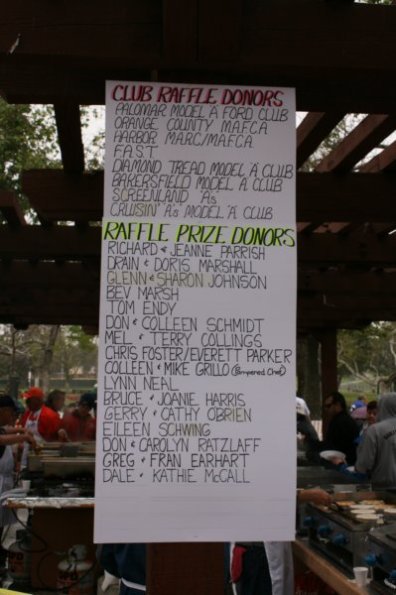 CLUB RAFFLE DONORS
PALOMAR MODEL A FORD CLUB
ORANGE COUNTY MAFCA
HARBOR MARC/MAFCA
F.A.S.T
DIAMOND TREAD MODEL 'A' CLUB
BAKERSFIELD MODEL A CLUB
SCREENLAND 'As
CRUISIN' A's MODEL 'A' CLUB
RAFFLE PRIZE DONORS
RICHARD & JEANNE PARRISH
DRAIN & DORIS MARSHALL
GLENN & SHARON JOHNSON
BEV MARSH
TOM ENDY
DON & COLLEEN SCHMIDT
MEL & TERRY COLLINGS
CHRIS FOSTER/EVERETT PARKER
COLLEEN & MIKE GRILLO (Pampered Chef)
LYNN NEAL
BRUCE & JOANIE HARRIS
GERRY & CATHY OBRIEN
EILEEN SCHWING
DON & CAROLYN RATZLAFF
GREG & FRAN EARHART
DALE & KATHIE McCALL